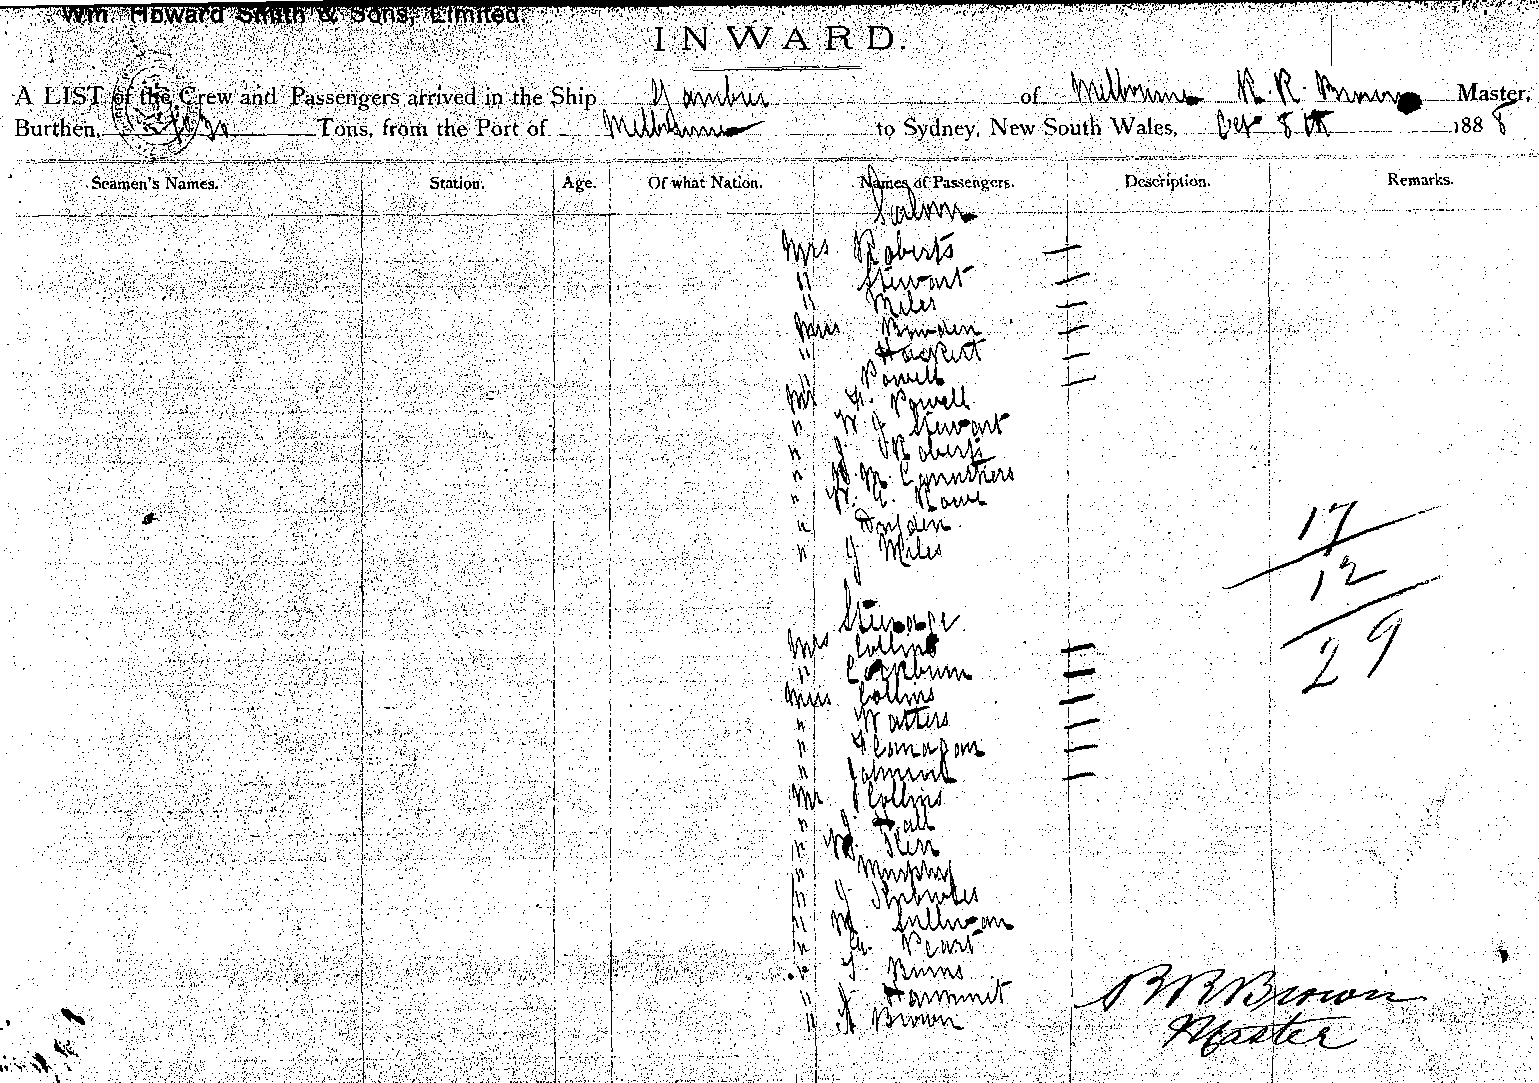 Wm Howard Smith & Sons, Limited.
INWARD.
A LIST of the Crew and Passengers arrived in the Ship of Melbourne R. R. Brown Master,
Burthen, Tons, from the Port of Melbourne to Sydney, New South Wales, Oct 8th 1888
Seamen's Names. Station. Age. Of what Nation. Names of Passengers. Description. Remarks.
Saloon
Mrs Roberts
" Stewart
" Miles
Miss Bowden
" Hackett
" Powell
Mr F. Powell
" W. J Stewart
" J Roberts
" M. Carruthers
" Rowe
" Dryden
" J Miles
17
12
29
Steerage
Mrs Collins
" Cockburn
Miss Collins
" Watters
" Flanagan
" Johnson
Mr Collins
" J Hall
" Kerr
" Murphy
" J.
" M Sullivan
" Geo. Peart
" T. Burns
" Hammet
" Brown
R R Brown
Master